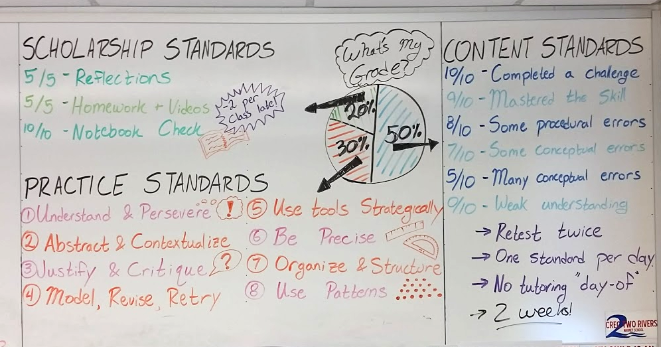 SCHOLARSHIP STANDARDS
5/5 - Reflections
5/5 - Homework + Videos
10/10 - Notebook Check
-2 per
class late!
What's My
Grade?
20%
30%
50%
PRACTICE STANDARDS
① Understand & Persevere
② Abstract & Contextualize
③ Justify & Critique
?
④ Model, Revise, Retry
!
⑤ Use tools Strategically
⑥ Be Precise
⑦ Organize & Structure
⑧ Use Patterns
CONTENT STANDARDS
10/10 - Completed a challenge
9/10 - Mastered the Skill
8/10 - Some procedural errors
7/10 - Some conceptual errors
5/10 - Many conceptual errors
0/10 - Weak understanding
→ Retest twice
→ One standard per day
→ No tutoring "day-of"
→ 2 weeks!
2
TWO RIVERS